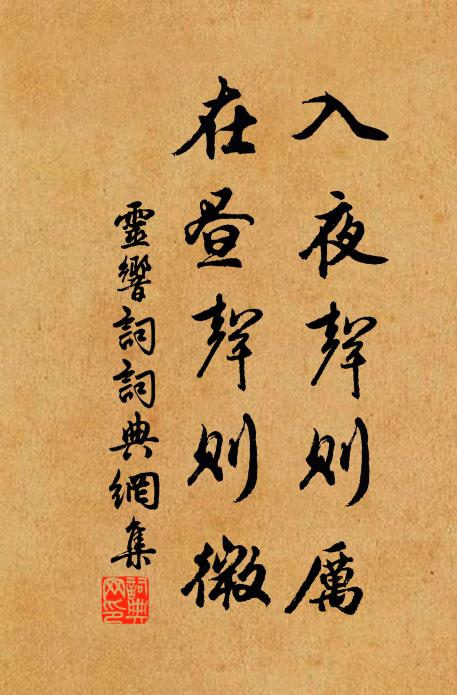 入夜聲則厲
在晝聲則微
靈響詞詞典網集
詞典
网印